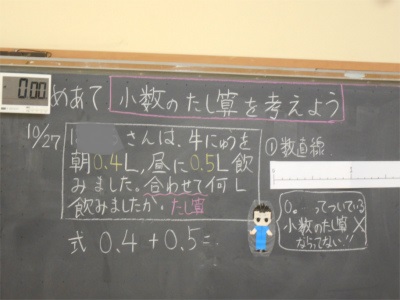 00:0
めあて 小数のたし算を考えよう
10/27
さんは、牛にゅうを
朝0.4L、昼に0.5L飲
みました。合わせて何L
飲みましたか。たし算
式 0.4+0.5=
① 数直線
0。ってついている
小数のたし算
ならってない!!